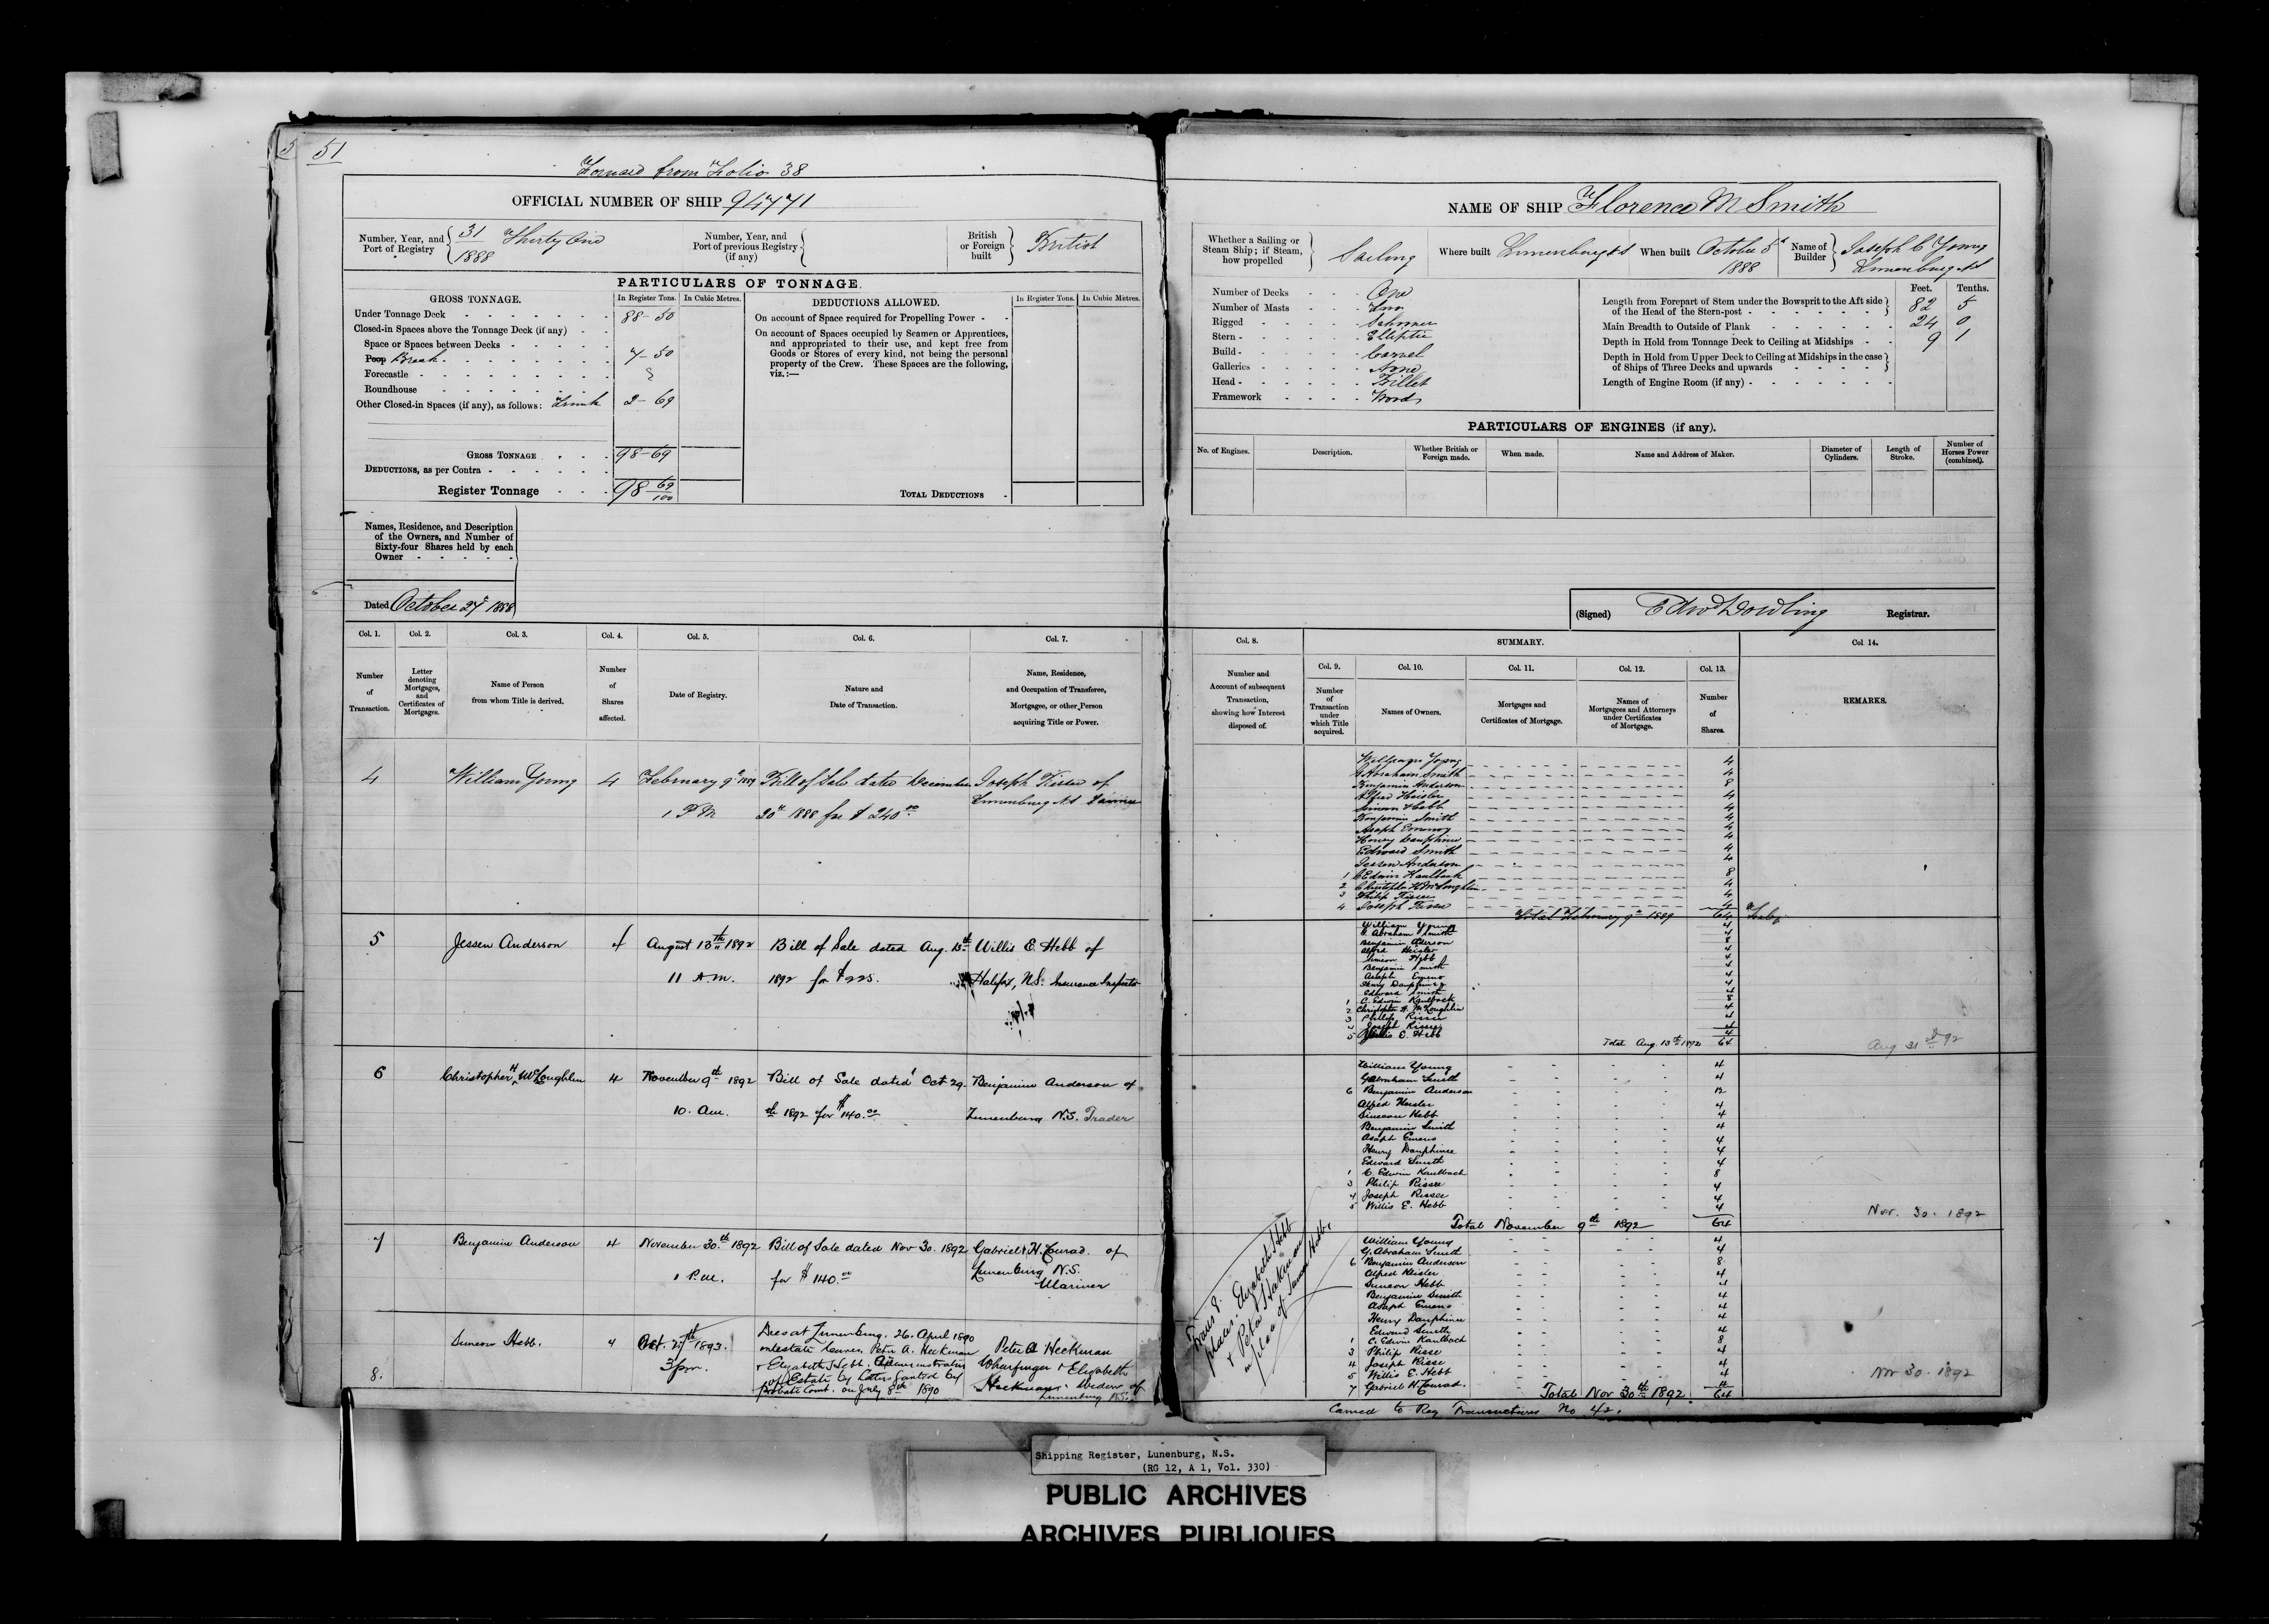 51
Forward from Folio 38
OFFICIAL NUMBER OF SHIP 94771
Number, Year, and Port of Registry 31 1888 Thirty One
Number, Year, and Port of previous Registry (if any)
British or Foreign built British
PARTICULARS OF TONNAGE.
GROSS TONNAGE.
In Register Tons. In Cubic Metres.
Under Tonnage Deck 88-50
Closed-in Spaces above the Tonnage Deck (if any)
Space or Spaces between Decks
Poop Break 7-50
Forecastle
Roundhouse
Other Closed-in Spaces (if any), as follows: Trunk 2-69
GROSS TONNAGE 98-69
DEDUCTIONS, as per Contra
Register Tonnage 98 69/100
DEDUCTIONS ALLOWED.
In Register Tons. In Cubic Metres.
On account of Space required for Propelling Power
On account of Spaces occupied by Seamen or Apprentices,
and appropriated to their use, and kept free from
Goods or Stores of every kind, not being the personal
property of the Crew. These Spaces are the following,
viz.:—
TOTAL DEDUCTIONS
Names, Residence, and Description
of the Owners, and Number of
Sixty-four Shares held by each
Owner
Dated October 27th 1888
Col. 1. Col. 2. Col. 3. Col. 4. Col. 5. Col. 6. Col. 7.
Number of Transaction.
Letter denoting Mortgages, and Certificates of Mortgages.
Name of Person from whom Title is derived.
Number of Shares affected.
Date of Registry.
Nature and Date of Transaction.
Name, Residence, and Occupation of Transferee, Mortgagee, or other Person acquiring Title or Power.
4 William Young 4 February 9th 1889 Bill of Sale dated December Joseph Risser of
1 P M 20th 1888 for $ 240.00 Lunenburg NS Farmer
5 Jessen Anderson 4 August 13th 1892 Bill of Sale dated Aug. 13th Willis E. Hebb of
11 A.M. 1892 for $225. Halifax, N.S. Insurance Inspector
6 Christopher H McLoughlin 4 November 9th 1892 Bill of Sale dated Oct 29 Benjamin Anderson of
10. am. th 1892 for $140.00 Lunenburg N.S. Trader
7 Benjamin Anderson 4 November 30th 1892 Bill of Sale dated Nov 30. 1892 Gabriel H. Conrad of
1 P.M. for $140.00 Lunenburg N.S.
Mariner
8. Simeon Hebb. 4 Oct. 27th 1893. Dies at Lunenburg. 26. April 1890
3 pm. intestate leaves Peter A. Heckman Peter A Heckman
& Elizabeth Hebb. Administrators Wharfinger & Elizabeth
of Estate by Letters Granted by Heckman. Widow of
Probate Court. on July 8th 1890 Lunenburg N.S.
NAME OF SHIP Florence M Smith
Whether a Sailing or Steam Ship; if Steam, how propelled Sailing
Where built Lunenburg NS
When built October 5th 1888
Name of Builder Joseph C Young Lunenburg NS
Number of Decks One
Number of Masts Two
Rigged Schooner
Stern Elliptic
Build Carvel
Galleries None
Head Billet
Framework Wood
Feet. Tenths.
Length from Forepart of Stem under the Bowsprit to the Aft side of the Head of the Stern-post 82 5
Main Breadth to Outside of Plank 24 0
Depth in Hold from Tonnage Deck to Ceiling at Midships 9 1
Depth in Hold from Upper Deck to Ceiling at Midships in the case of Ships of Three Decks and upwards
Length of Engine Room (if any)
PARTICULARS OF ENGINES (if any).
No. of Engines. Description. Whether British or Foreign made. When made. Name and Address of Maker. Diameter of Cylinders. Length of Stroke. Number of Horses Power (combined).
(Signed) Edwd Dowling Registrar.
Col. 8. SUMMARY. Col. 14.
Col. 9. Col. 10. Col. 11. Col. 12. Col. 13.
Number and Account of subsequent Transaction, showing how Interest disposed of.
Number of Transaction under which Title acquired.
Names of Owners.
Mortgages and Certificates of Mortgage.
Names of Mortgagees and Attorneys under Certificates of Mortgage.
Number of Shares.
REMARKS.
William Young 4
G Abraham Smith 4
Benjamin Anderson 8
Alfred Heisler 4
Simeon Hebb 4
Benjamin Smith 4
Asaph Emeno 4
Henry Dauphinee 4
Edward Smith 4
Jessen Anderson 4
1 C Edwin Kaulback 8
2 Christopher H McLoughlin 4
3 Philip Risser 4
4 Joseph Risser 4
Total February 9th 1889 64
William Young 4
G Abraham Smith 4
Benjamin Aderson 8
Alfred Heisler 4
Simeon Hebb 4
Benjamin Smith 4
Asaph Emeno 4
Henry Dauphinee 4
Edward Smith 4
1 C. Edwin Kaulback 8
2 Christopher H McLoughlin 4
3 Philip Risser 4
4 Joseph Risser 4
5 Willis E. Hebb 4
Total Aug. 13th 1892 64
Aug 31st 92
William Young 4
G Abraham Smith 4
6 Benjamin Anderson 12
Alfred Heisler 4
Simeon Hebb 4
Benjamin Smith 4
Asaph Emeno 4
Henry Dauphinee 4
Edward Smith 4
1 C. Edwin Kaulbach 8
3 Philip Risser 4
4 Joseph Risser 4
5 Willis E. Hebb 4
Total November 9th 1892 64
Nov. 30. 1892
William Young 4
G. Abraham Smith 4
6 Benjamin Anderson 8
Alfred Heisler 4
Simeon Hebb 4
Benjamin Smith 4
Asaph Emeno 4
Henry Dauphinee 4
Edward Smith 4
1 C. Edwin Kaulbach 8
3 Philip Risser 4
4 Joseph Risser 4
5 Willis E. Hebb 4
7 Gabriel H. Conrad. 4
Total Nov 30th 1892. 64
Nov 30. 1892
Trans 8.
Elizabeth Hebb
& Peter Heckman
in place of
Carried to Reg Transactions No 42.
Shipping Register, Lunenburg, N.S.
(RG 12, A 1, Vol. 330)
PUBLIC ARCHIVES
ARCHIVES PUBLIQUES